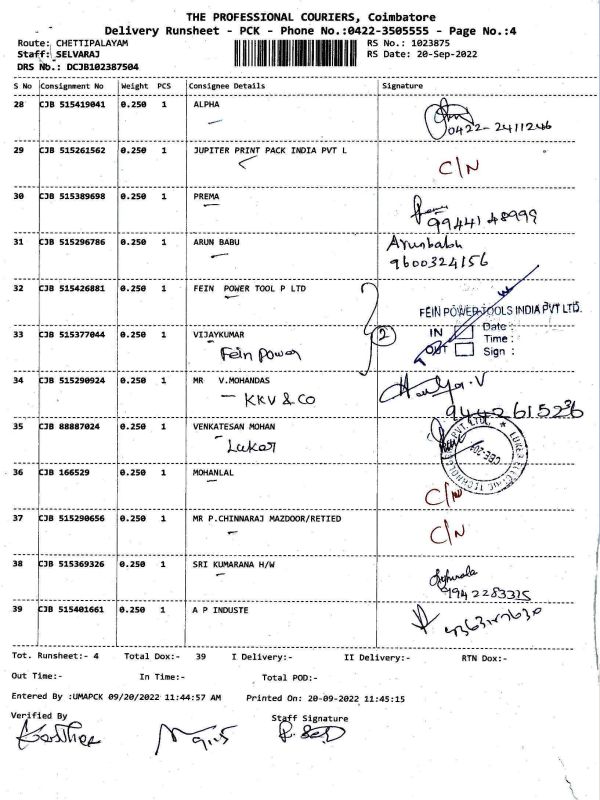 THE PROFESSIONAL COURIERS, Coimbatore
Delivery Runsheet - PCK - Phone No.:0422-3505555 - Page No.:4
Route: CHETTIPALAYAM RS No.: 1023875
Staff: SELVARAJ RS Date: 20-Sep-2022
DRS No.: DCJB102387504
S No Consignment No Weight PCS Consignee Details Signature
28 CJB 515419041 0.250 1 ALPHA
0422-2411246
29 CJB 515261562 0.250 1 JUPITER PRINT PACK INDIA PVT L
C/N
30 CJB 515389698 0.250 1 PREMA
9944148999
31 CJB 515296786 0.250 1 ARUN BABU Arunbabu
9600324156
32 CJB 515426881 0.250 1 FEIN POWER TOOL P LTD
FEIN POWER TOOLS INDIA PVT LTD.
IN Date :
Time :
OUT Sign :
33 CJB 515377044 0.250 1 VIJAYKUMAR 2
Fein power
34 CJB 515290924 0.250 1 MR V.MOHANDAS
- KKV & CO
9442615236
35 CJB 88887024 0.250 1 VENKATESAN MOHAN
Luker
36 CJB 166529 0.250 1 MOHANLAL
C/N
37 CJB 515290656 0.250 1 MR P.CHINNARAJ MAZDOOR/RETIED
C/N
38 CJB 515369326 0.250 1 SRI KUMARANA H/W
9942283325
39 CJB 515401661 0.250 1 A P INDUSTE
Tot. Runsheet:- 4 Total Dox:- 39 I Delivery:- II Delivery:- RTN Dox:-
Out Time:- In Time:- Total POD:-
Entered By :UMAPCK 09/20/2022 11:44:57 AM Printed On: 20-09-2022 11:45:15
Verified By Staff Signature